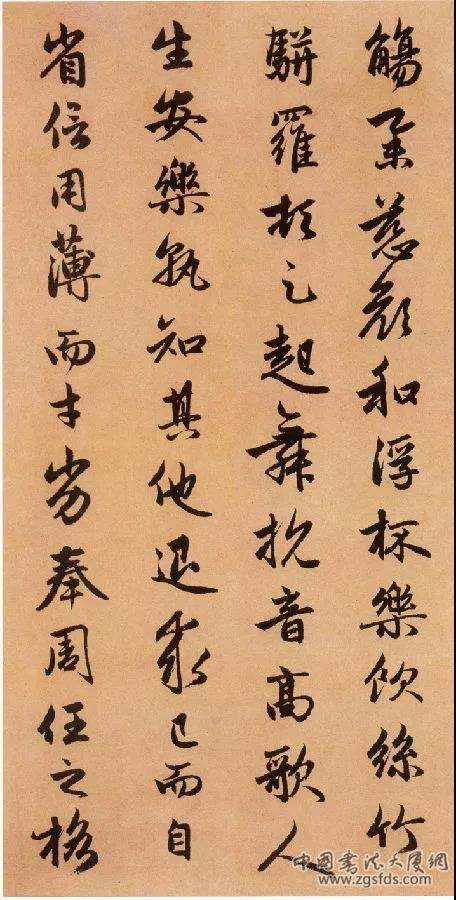 觴舉慈顏和浮杯樂飲絲竹
駢羅頓足起舞抗音高歌人
生安樂孰知其他退求己而自
省信用薄而才劣奉周任之格
中国書法大厦網
www.zgsfds.com